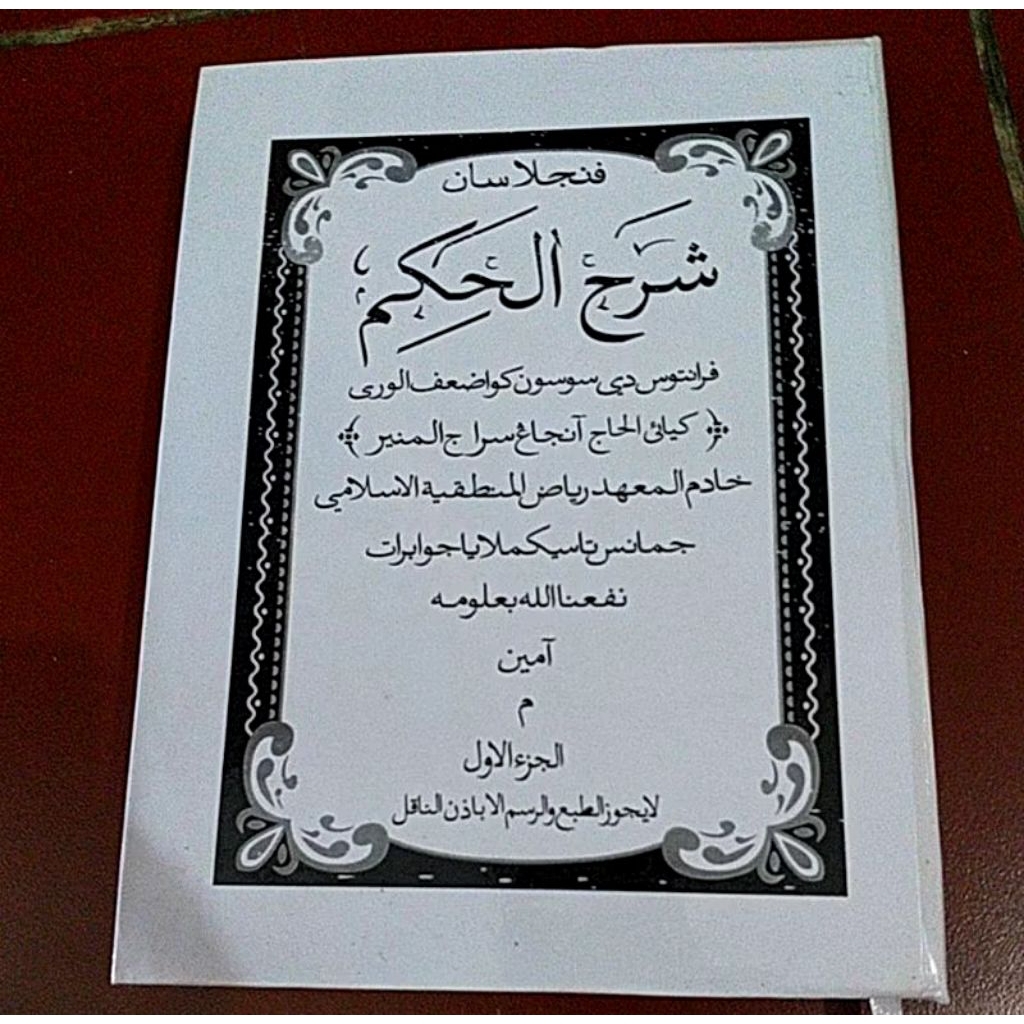 فنجلاسان
شرح الحكم
فرانتوس دي سوسون كو اضعف الورى
﴿ كيائي الحاج آنجاڠ سراج المنير ﴾
خادم المعهد رياض المنطقية الاسلامي
جمانس تاسيكملايا جوابرات
نفعنا الله بعلومه
آمين
م
الجزء الاول
لايجوز الطبع والرسم الا باذن الناقل